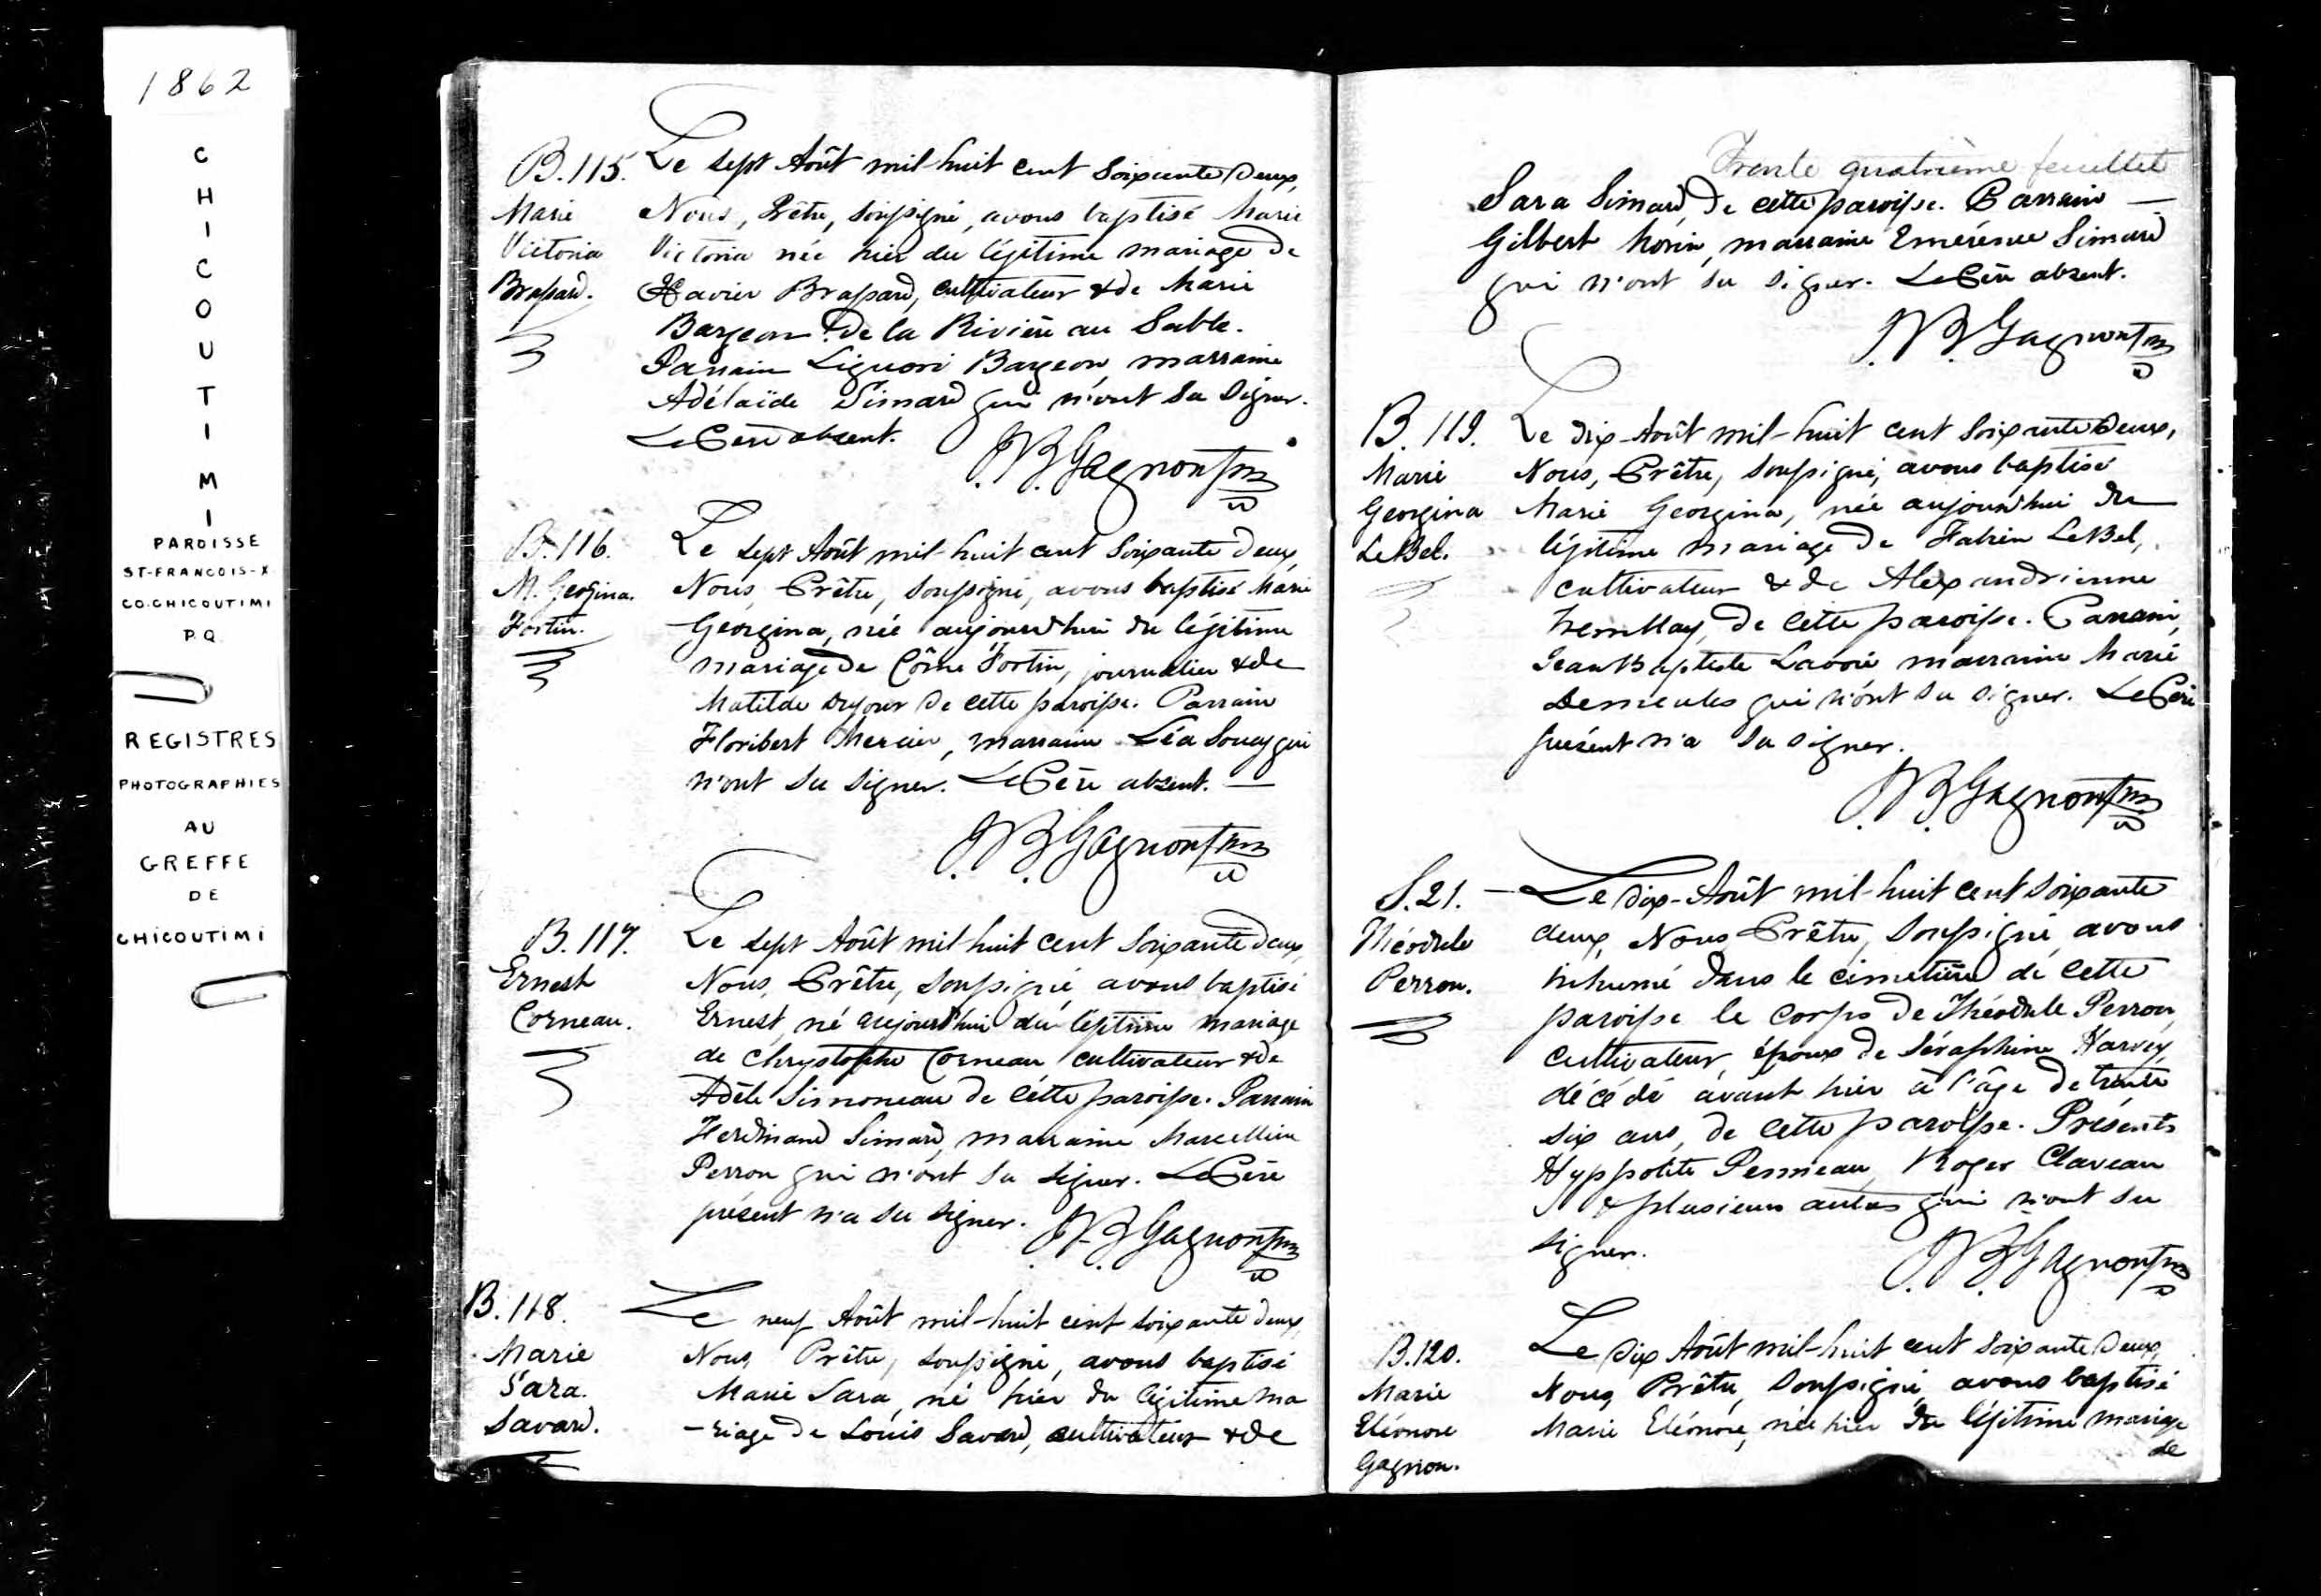 1862
CHICOUTIMI
PAROISSE
ST-FRANCOIS-X
CO. CHICOUTIMI
P.Q.
REGISTRES
PHOTOGRAPHIES
AU
GREFFE
DE
CHICOUTIMI
B. 115.
Marie
Victoria
Brassard.
Le sept Août mil-huit cent soixante deux,
Nous, Prêtre, soussigné, avons baptisé Marie
Victoria née hier du légitime mariage de
Xavier Brassard, cultivateur & de Marie
Bargeon de la Rivière au Sable.
Parrain Liguori Bargeon, marraine
Adélaïde Simard qui n'ont su signer.
Le Père absent.
J. B. Gagnon Ptre
B. 116.
M. Georgina
Fortin.
Le sept Août mil-huit cent soixante deux,
Nous, Prêtre, soussigné, avons baptisé Marie
Georgina, née aujourd'hui du légitime
mariage de Côme Fortin, journalier & de
Matilde de cette paroisse. Parrain
Floribert Mercier, marraine Léa Soucy qui
n'ont su signer. Le Père absent. —
J. B. Gagnon Ptre
B. 117.
Ernest
Corneau.
Le sept Août mil-huit cent soixante deux,
Nous, Prêtre, soussigné, avons baptisé
Ernest, né aujourd'hui du légitime mariage
de Chrystophe Corneau, cultivateur & de
Adèle Simoneau de cette paroisse. Parrain
Ferdinand Simard, marraine Marcelline
Perron qui n'ont su signer. Le Père
présent n'a su signer.
J. B. Gagnon Ptre
B. 118.
Marie
Sara
Savard.
Le neuf Août mil-huit cent soixante deux,
Nous, Prêtre, soussigné, avons baptisé
Marie Sara, né hier du légitime ma
-riage de Louis Savard, cultivateur & de
Trente quatrième feuillet
Sara Simard, de cette paroisse. Parrain —
Gilbert Morin, marraine Emérence Simard
qui n'ont su signer. Le Père absent.
J. B. Gagnon Ptre
B. 119.
Marie
Georgina
LeBel.
Le dix-Août mil-huit cent soixante deux,
Nous, Prêtre, soussigné, avons baptisé
Marie Georgina, née aujourd'hui du
légitime mariage de Fabien LeBel,
cultivateur & de Alexandrienne
Tremblay, de cette paroisse. Parrain,
Jean Baptiste Lavoie marraine Marie
Desmeules qui n'ont su signer. Le Père
présent n'a su signer.
J. B. Gagnon Ptre
S. 21.
Théodule
Perron.
Le dix-Août mil-huit cent soixante
deux, Nous Prêtre, soussigné, avons
inhumé dans le cimetière de cette
paroisse le corps de Théodule Perron,
cultivateur, époux de Séraphine Harvey,
décédé avant hier à l'âge de trente
six ans, de cette paroisse. Présents
Hyppolite, Roger Claveau
& plusieurs autres qui n'ont su
signer.
J. B. Gagnon Ptre
B. 120.
Marie
Eléonore
Gagnon.
Le dix Août mil-huit cent soixante deux,
Nous, Prêtre, soussigné, avons baptisé
Marie Eléonore, née hier du légitime mariage
de